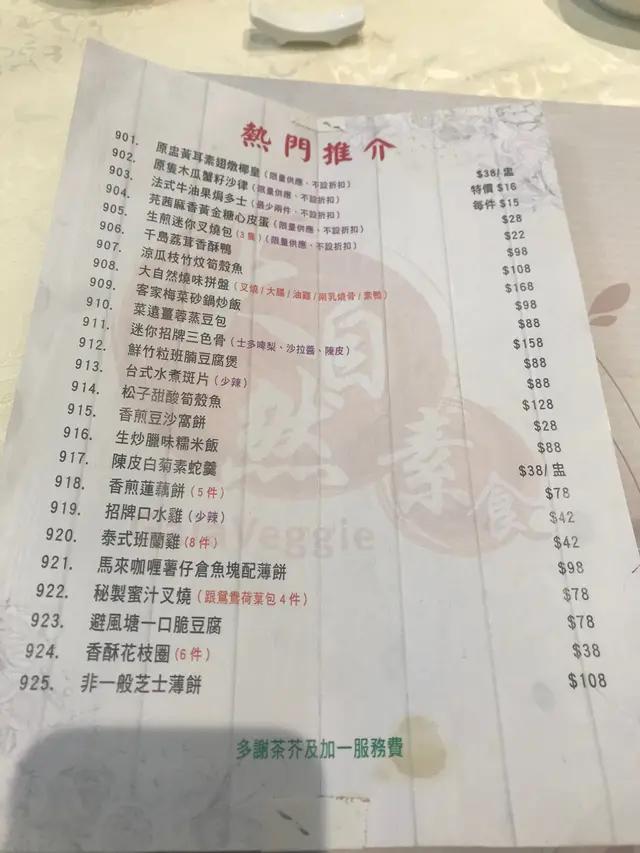 熱門推介
901. 原盅黃耳素翅燉椰皇(限量供應、不設折扣) $38/盅
902. 原隻木瓜蟹籽沙律(限量供應、不設折扣) 特價 $16
903. 法式牛油果焗多士(最少兩件、不設折扣) 每件 $15
904. 芫茜麻香黃金糖心皮蛋(限量供應、不設折扣) $28
905. 生煎迷你叉燒包(3隻)(限量供應、不設折扣) $22
906. 千島荔茸香酥鴨 $98
907. 涼瓜枝竹炆筍殼魚 $108
908. 大自然燒味拼盤(叉燒/大腸/油雞/南乳燒骨/素鴨) $168
909. 客家梅菜砂鍋炒飯 $98
910. 菜遠薑蓉蒸豆包 $88
911. 迷你招牌三色骨(士多啤梨、沙拉醬、陳皮) $158
912. 鮮竹粒班腩豆腐煲 $88
913. 台式水煮斑片(少辣) $88
914. 松子甜酸筍殼魚 $128
915. 香煎豆沙窩餅 $28
916. 生炒臘味糯米飯 $88
917. 陳皮白菊素蛇羹 $38/盅
918. 香煎蓮藕餅(5件) $78
919. 招牌口水雞(少辣) $42
920. 泰式班蘭雞(8件) $42
921. 馬來咖喱薯仔倉魚塊配薄餅 $98
922. 秘製蜜汁叉燒(跟鴛鴦荷葉包4件) $78
923. 避風塘一口脆豆腐 $78
924. 香酥花枝圈(6件) $38
925. 非一般芝士薄餅 $108
自然
素食
Veggie
多謝茶芥及加一服務費